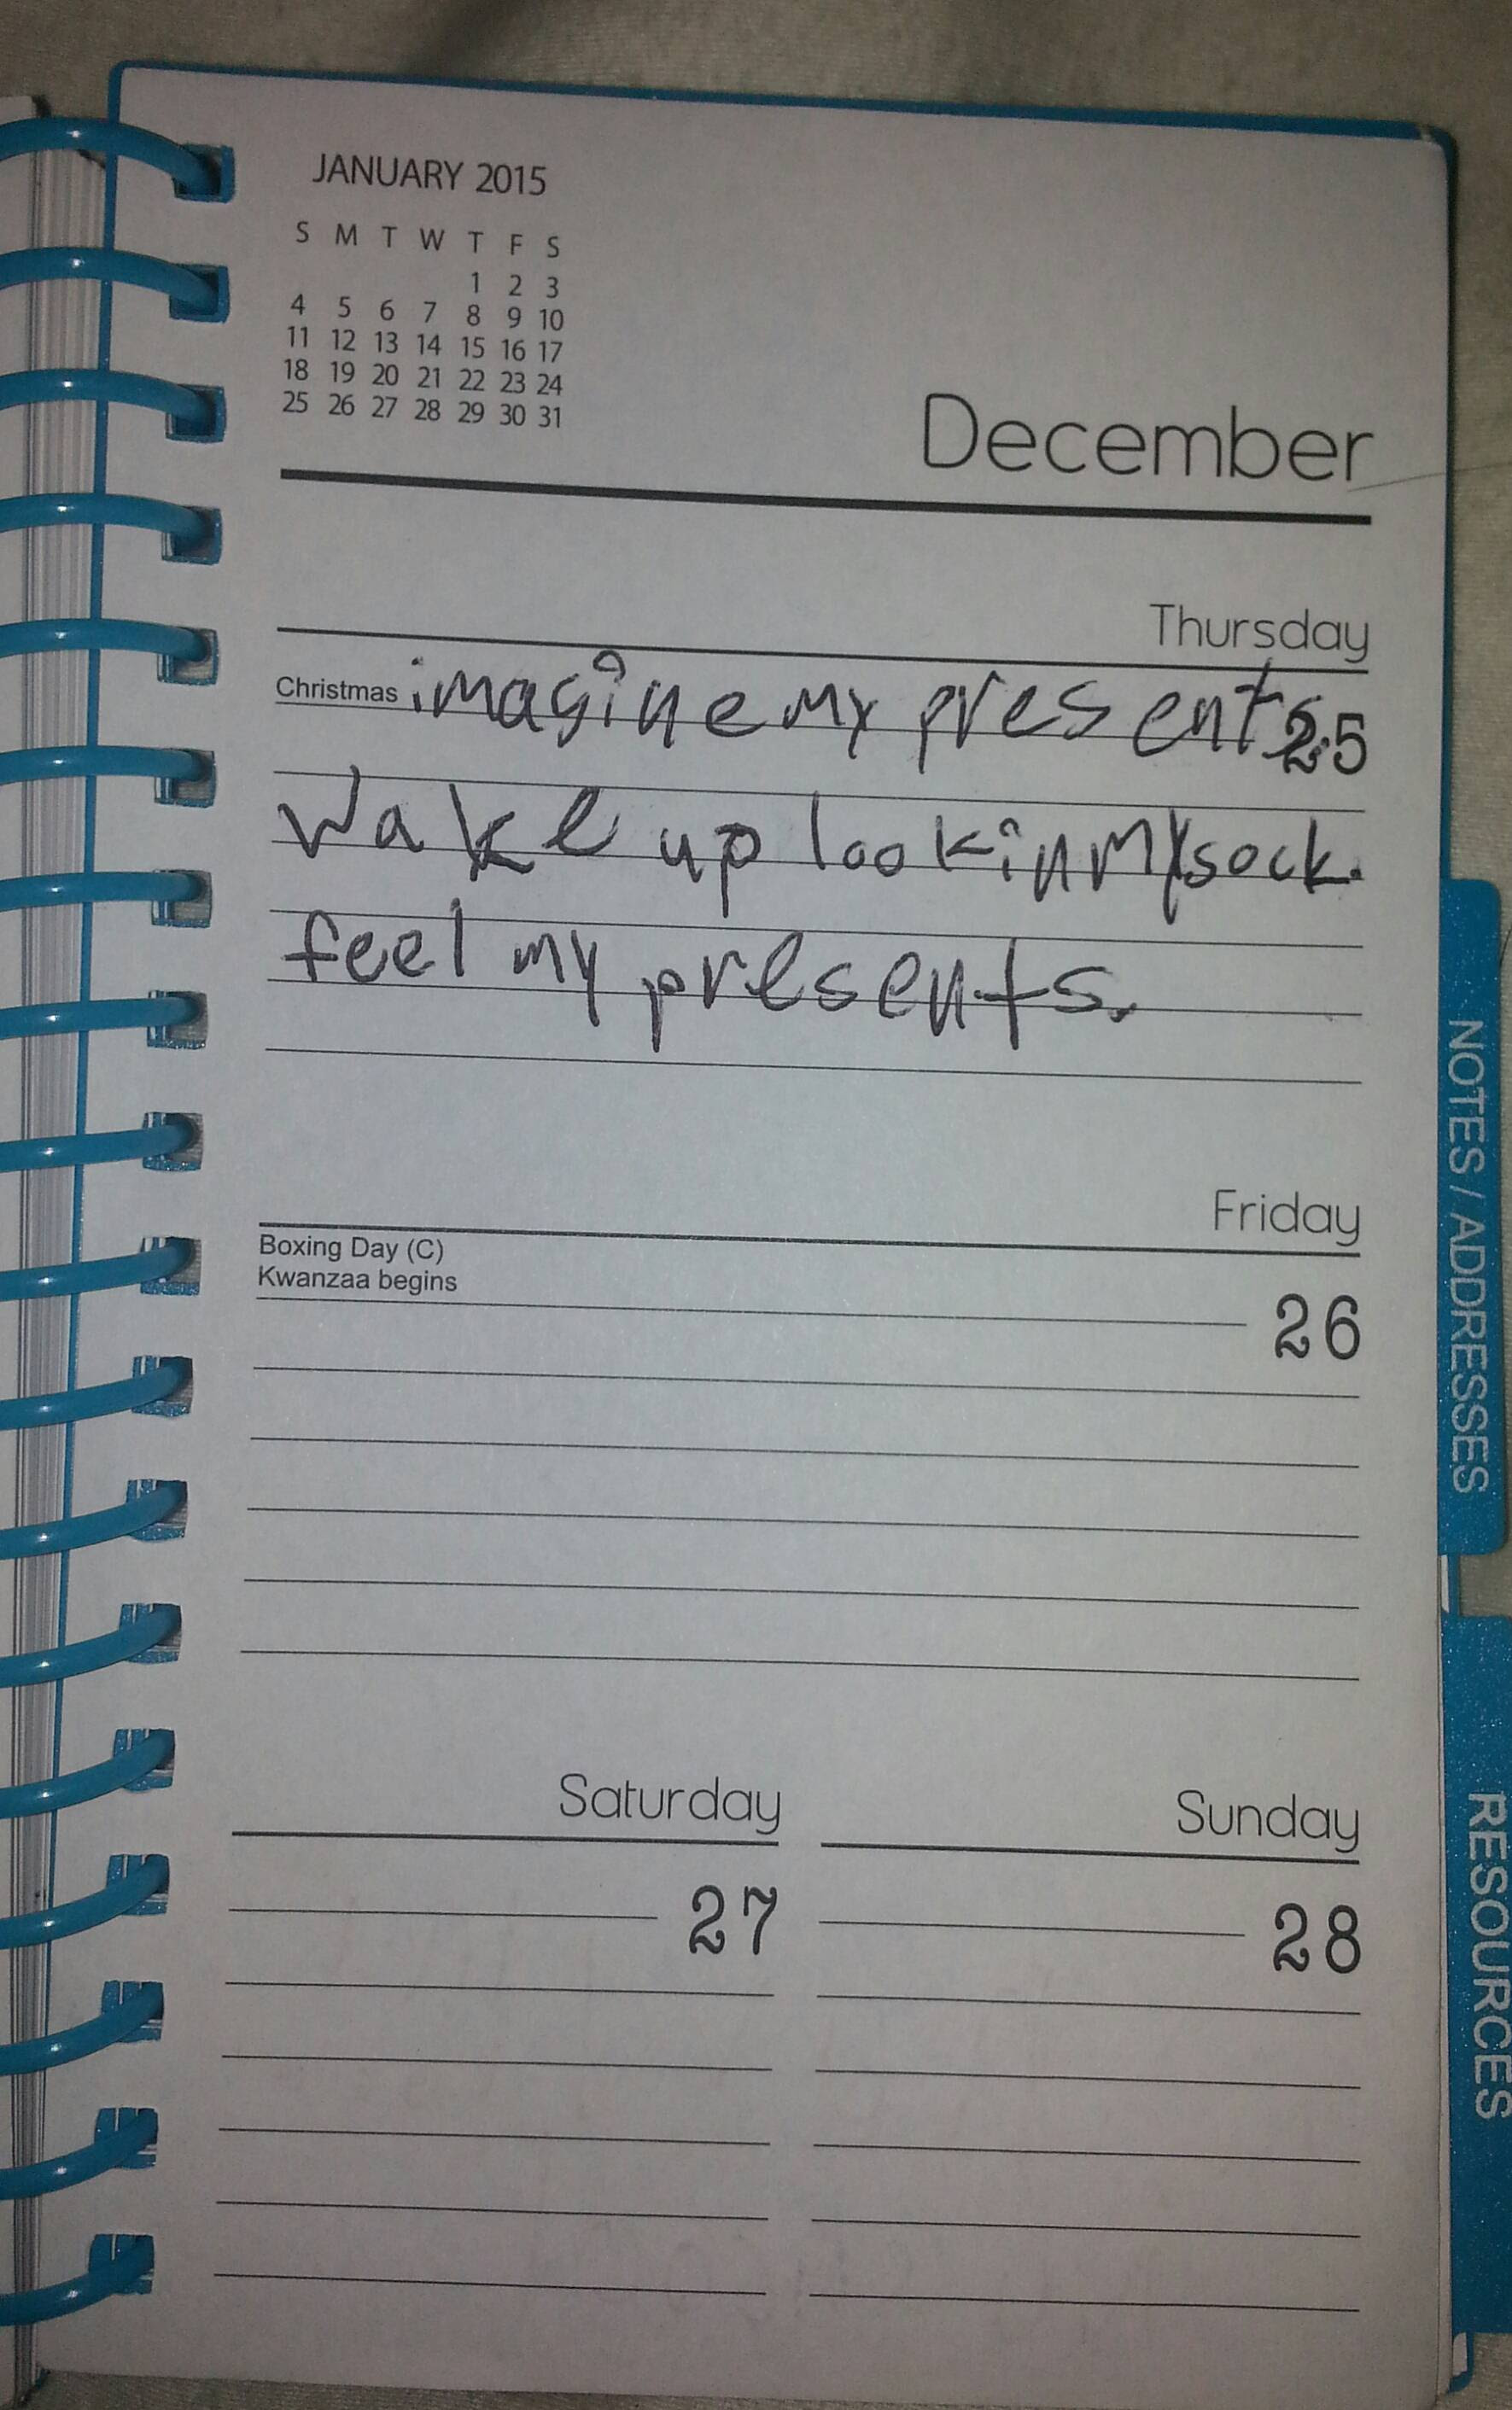 JANUARY 2015
S M T W T F S
1 2 3
4 5 6 7 8 9 10
11 12 13 14 15 16 17
18 19 20 21 22 23 24
25 26 27 28 29 30 31
December
Thursday
Christmas imagine my presents. 25
Wake up look in my sock.
feel my presents.
Friday
Boxing Day (C)
Kwanzaa begins
26
Saturday
27
Sunday
28
NOTES / ADDRESSES
RESOURCES